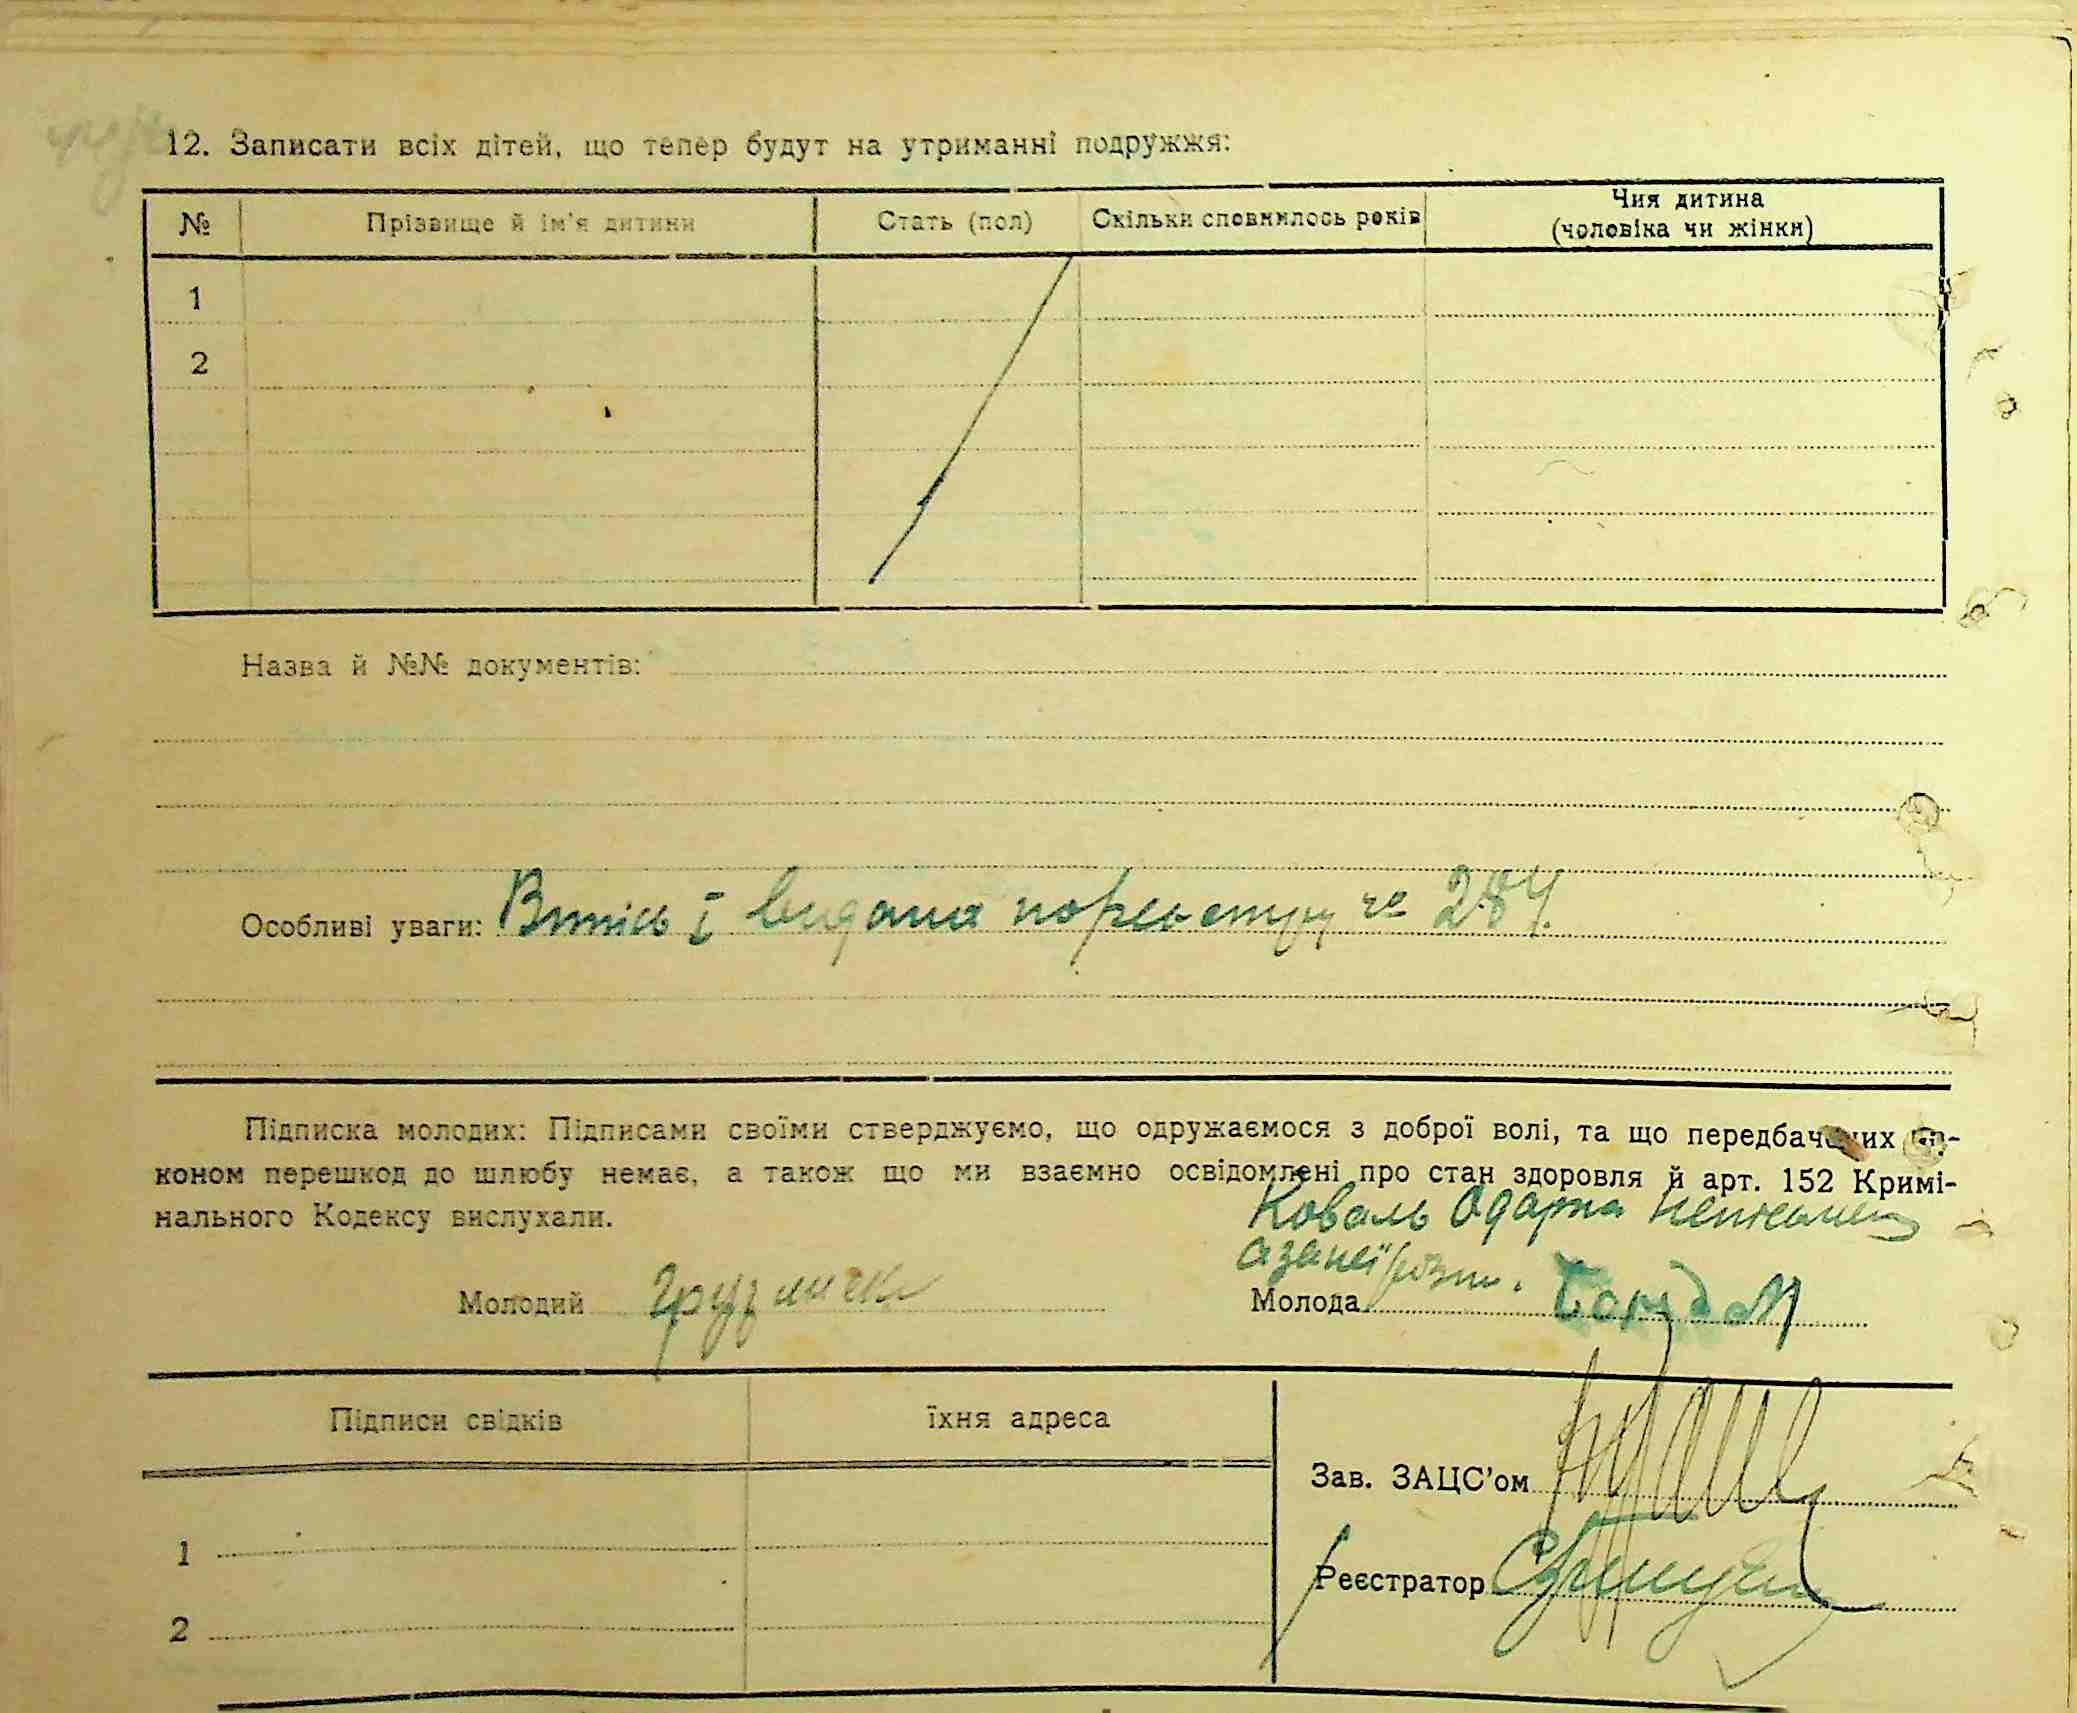 12. Записати всіх дітей, що тепер будут на утриманні подружжя:
№ Прізвище й ім'я дитини Стать (пол) Скільки сповнилось років Чия дитина
(чоловіка чи жінки)
1
2
Назва й №№ документів:
Особливі уваги: Виписъ І видана по реєстру № 284.
Підписка молодих: Підписами своїми стверджуємо, що одружаємося з доброї волі, та що передбачених за-
коном перешкод до шлюбу немає, а також що ми взаємно освідомлені про стан здоровля й арт. 152 Кримі-
нального Кодексу вислухали.
Коваль Одарка неписьмен
а за неї розп.
Молодий Молода
Підписи свідків їхня адреса
Зав. ЗАЦС'ом
1
Реєстратор
2